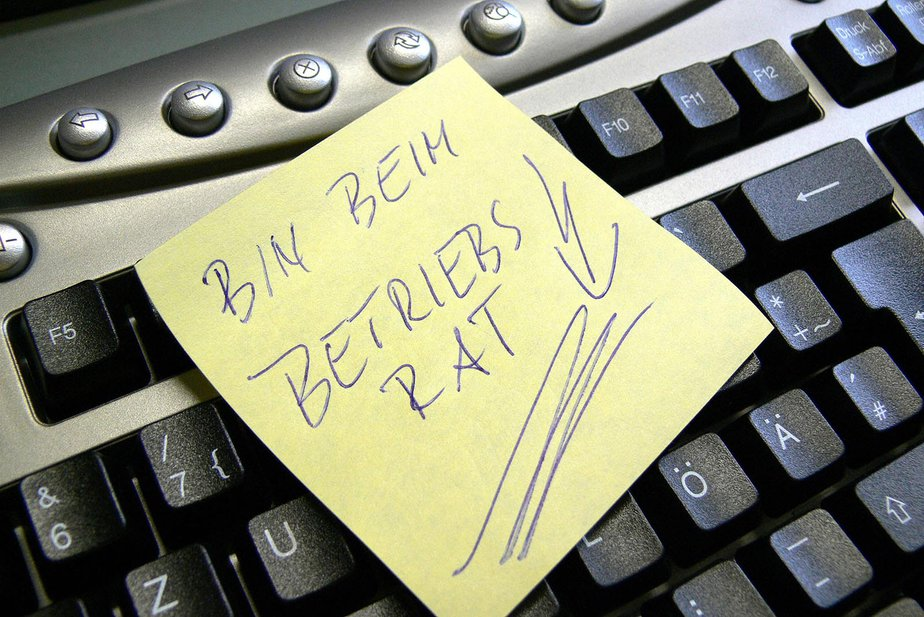 BIN BEIM
BETRIEBS
RAT
F5
F10
F11
F12
Druck
S-Abf
&
6
/
7 {
Z
U
Ö
Ä
*
+ ~
'
#